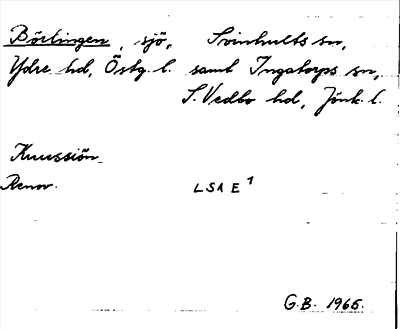 Börlingen, sjö, Svinhults sn,
Ydre hd, Östg. l. samt Ingatorps sn,
S. Vedbo hd, Jönk. l.
Renov. LSA E¹
G.B. 1965.